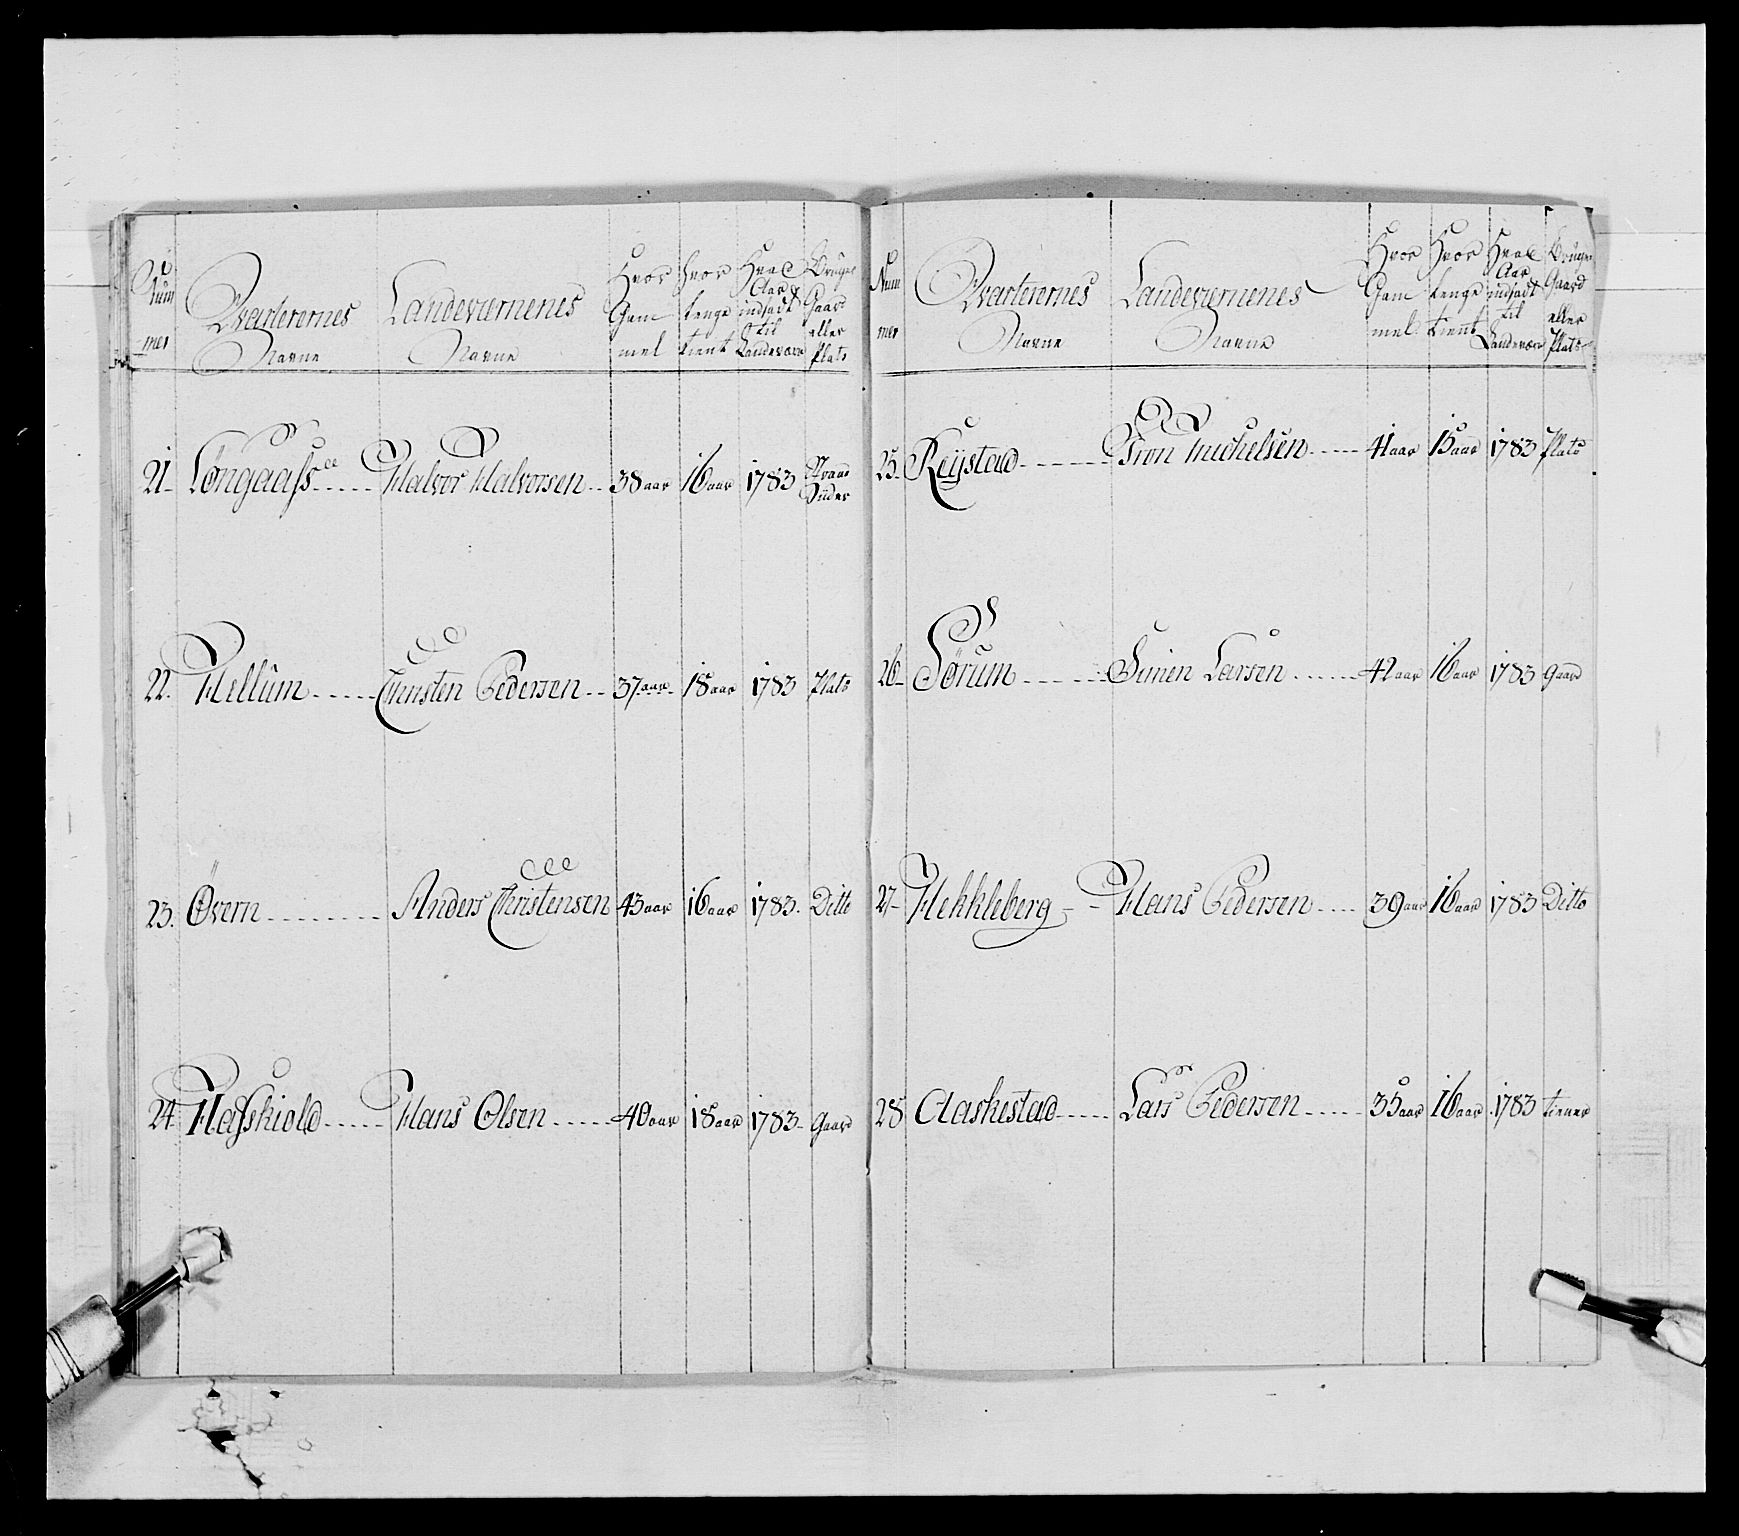 Num mer
Qvarterernes Navne
Landeværnenes Navne
Hvor Gam mel
hvor lenge tient
Hvad Aar indsadt til Landeværn
Bruger Gaard eller Plats
21 Longaass Halvor Halvorsen 38 aar 16 aar 1783 Strand Sider
22. Hellum Christen Pedersen 37 aar 18 aar 1783 Plats
23. Övern Anders Christensen 43 aar 16 aar 1783. Ditto
24 Hasskiold Hans Olsen 40 aar 18 aar 1783 Gaard
Num mer
Qvarterernes Navne
Landeværnenes Navne
Hvor Gam mel
Hvor lenge tient
Hvad Aar indsadt til Landeværn
Bruger Gaard eller Plats
25 Reystad Tron Michelsen 41 aar 15 aar 1783 Plats
26 Sørum Simen Larsen 42 aar 16 aar 1783 Gaard
27 Hekkleberg Hans Pedersen 39 aar 16 aar 1783 Ditto
28 Aaskestad Lars Pedersen 35 aar 16 aar 1783 tienner